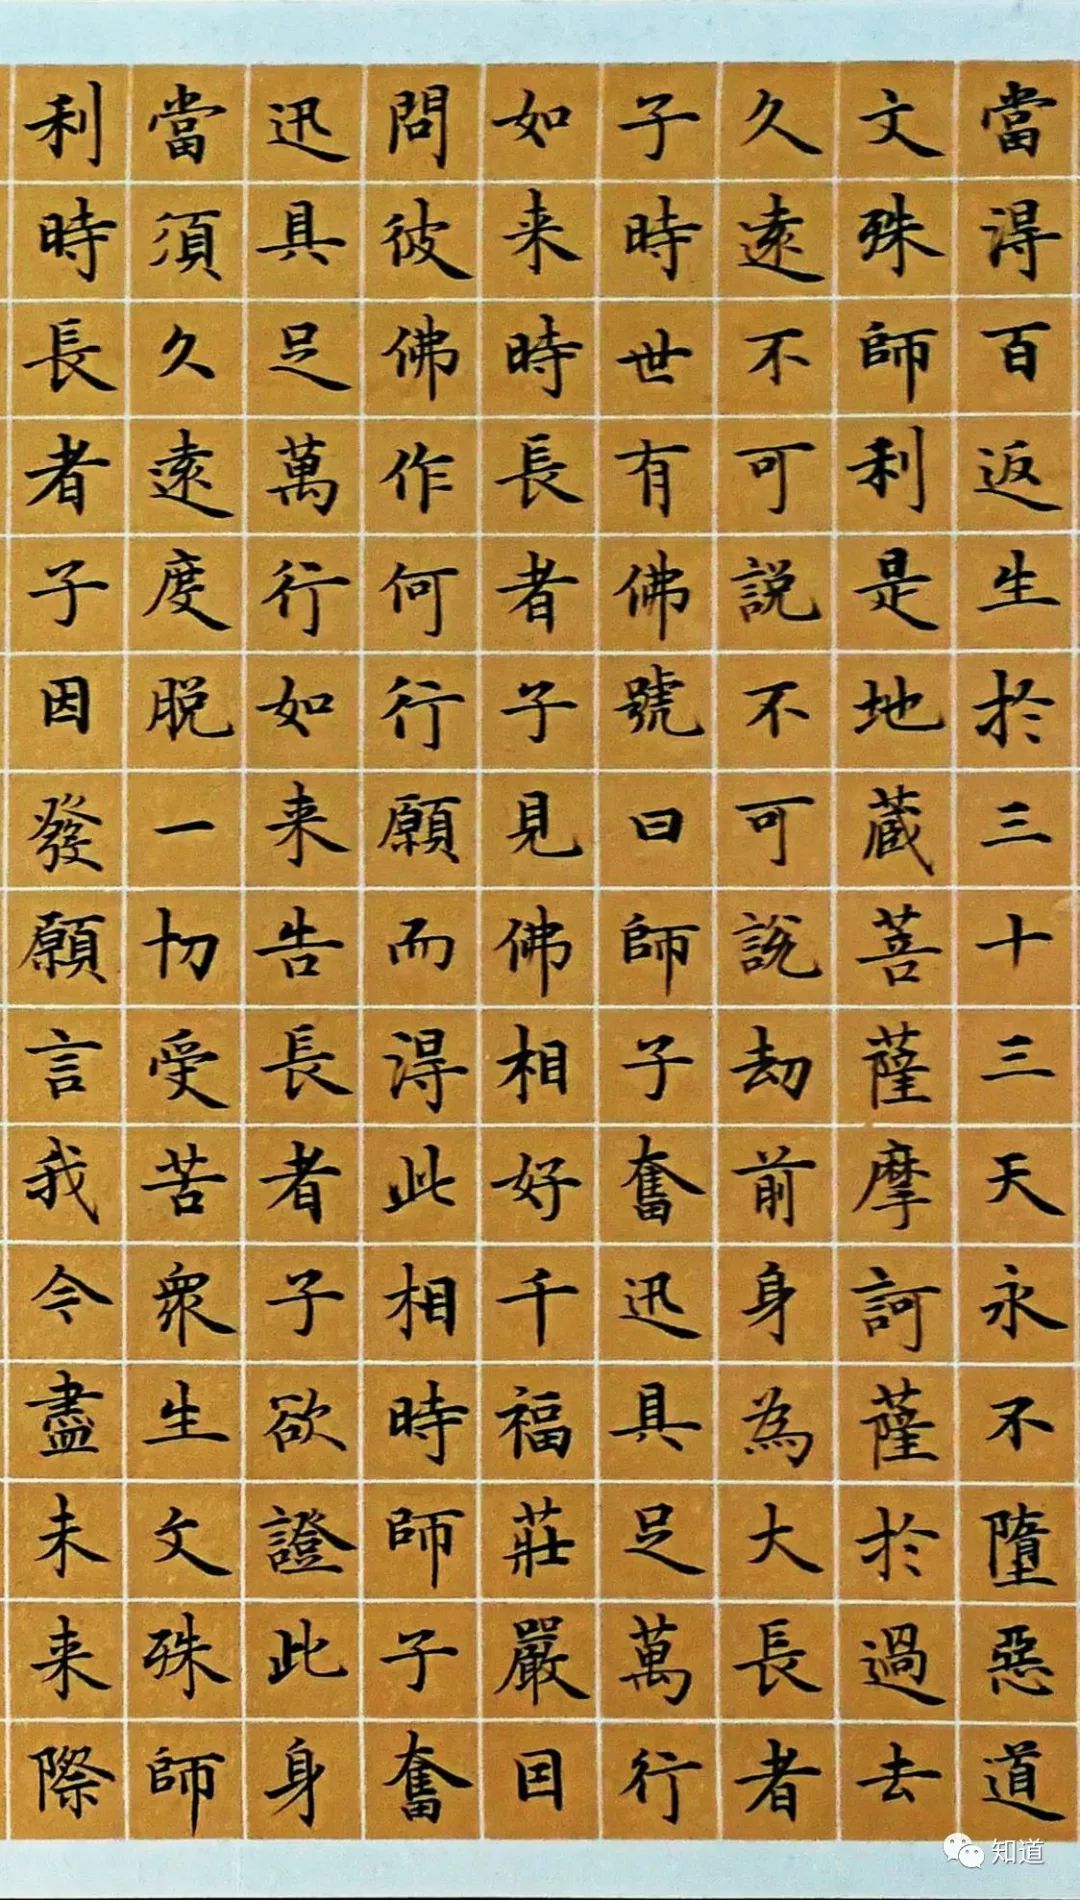 當得百返生於三十三天永不墮惡道
文殊師利是地蔵菩薩摩訶薩於過去
久遠不可説不可說劫前身為大長者
子時世有佛號曰師子奮迅具足萬行
如来時長者子見佛相好千福莊嚴因
問彼佛作何行願而得此相時師子奮
迅具足萬行如来告長者子欲證此身
當須久遠度脱一切受苦衆生文殊師
利時長者子因發願言我今盡未来際
知道